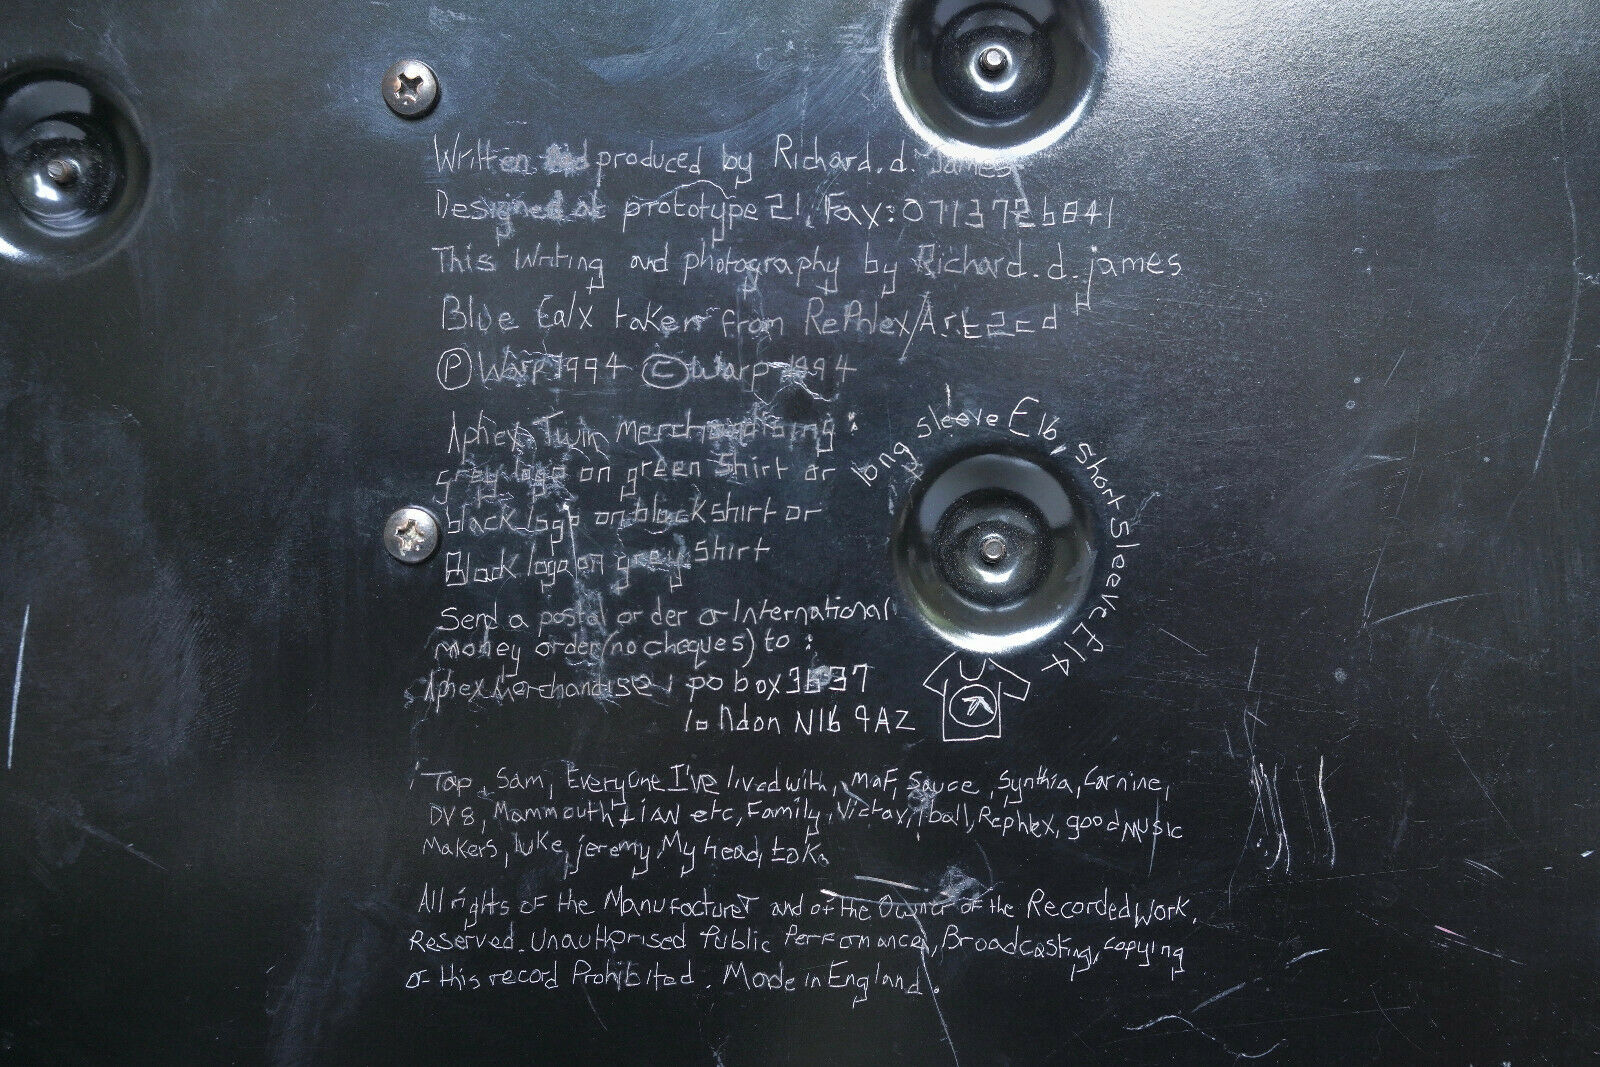 Written And produced by Richard. d. James
Designed at prototype 21, Fax: 071 3726841
This Writing and photography by Richard. d. james
Blue Calx taken from RePhlex/Art 2cd
Ⓟ Warp 1994 © Warp 1994
Aphex Twin merchandising :
grey logo on green shirt or
black logo on black shirt or
Black logo on grey shirt
long sleeve £16, short sleeve £14
Send a postal order or International
money order (no cheques) to :
Aphex Merchandise, po box
london N16 9AZ
Tap, Sam, Everyone I've lived with, Maf, Sauce, Synthia, Carnine,
DV8, Mammouth, Ian etc, Family, Victax, 1ball, Rephlex, good Music
Makers, luke, jeremy, My head, tak.
All rights of the Manufacturer and of the Owner of the Recorded Work.
Reserved. Unauthorised Public Performance, Broadcasting, copying
of this record Prohibited. Made in England.